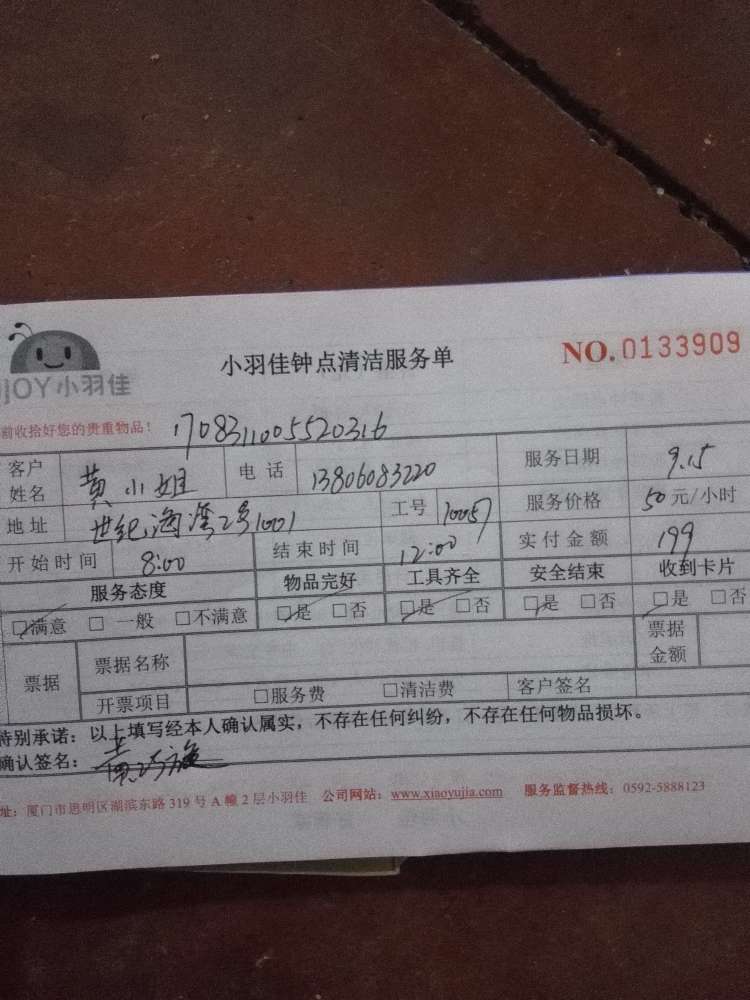 小羽佳钟点清洁服务单 NO.0133909
jOY小羽佳
前收拾好您的贵重物品! 1708311005520316
客户姓名 黄小姐 电话 13806083220 服务日期 9.15
地址 世纪海湾2号1001 工号 10057 服务价格 50元/小时
开始时间 8:00 结束时间 12:00 实付金额 199
服务态度 物品完好 工具齐全 安全结束 收到卡片
☑满意 □一般 □不满意 ☑是 □否 ☑是 □否 ☑是 □否 ☑是 □否
票据 票据名称 票据金额
开票项目 □服务费 □清洁费 客户签名
特别承诺:以上填写经本人确认属实,不存在任何纠纷,不存在任何物品损坏。
确认签名:
址:厦门市思明区湖滨东路319号A幢2层小羽佳 公司网站:www.xiaoyujia.com 服务监督热线:0592-5888123